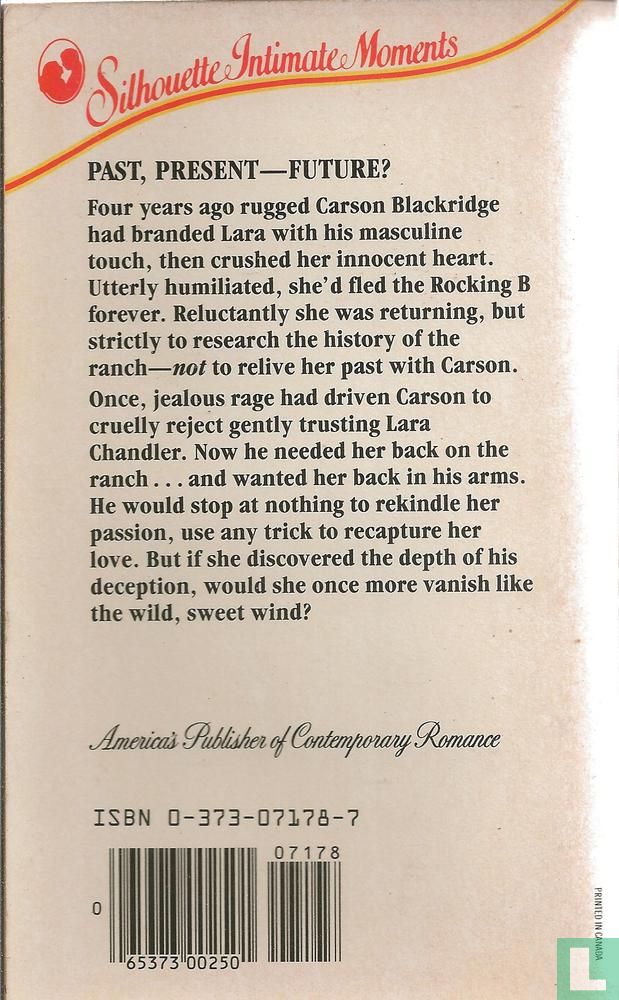 Silhouette Intimate Moments
PAST, PRESENT—FUTURE?
Four years ago rugged Carson Blackridge
had branded Lara with his masculine
touch, then crushed her innocent heart.
Utterly humiliated, she'd fled the Rocking B
forever. Reluctantly she was returning, but
strictly to research the history of the
ranch—not to relive her past with Carson.
Once, jealous rage had driven Carson to
cruelly reject gently trusting Lara
Chandler. Now he needed her back on the
ranch . . . and wanted her back in his arms.
He would stop at nothing to rekindle her
passion, use any trick to recapture her
love. But if she discovered the depth of his
deception, would she once more vanish like
the wild, sweet wind?
America's Publisher of Contemporary Romance
ISBN 0-373-07178-7
07178
0
65373 00250
PRINTED IN CANADA
L